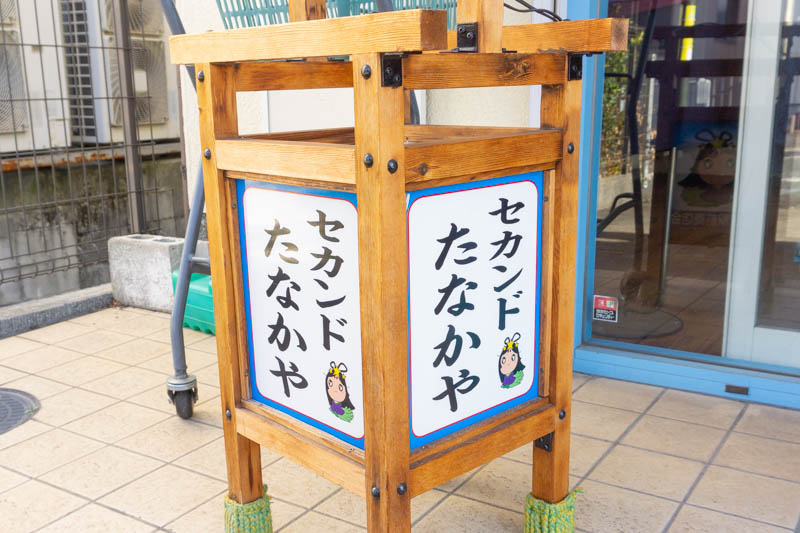 セカンド
たなかや
セカンド
たなかや